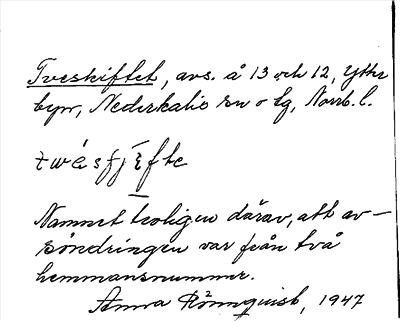 Tveskiftet, avs. å 13 och 12, Ytter
byn, Nederkalix sn o tg, Norrb. l.
twésfjı̄fte
Namnet troligen därav, att av-
söndringen var från två
hemmansnummer.
Anna Rönnquist, 1947